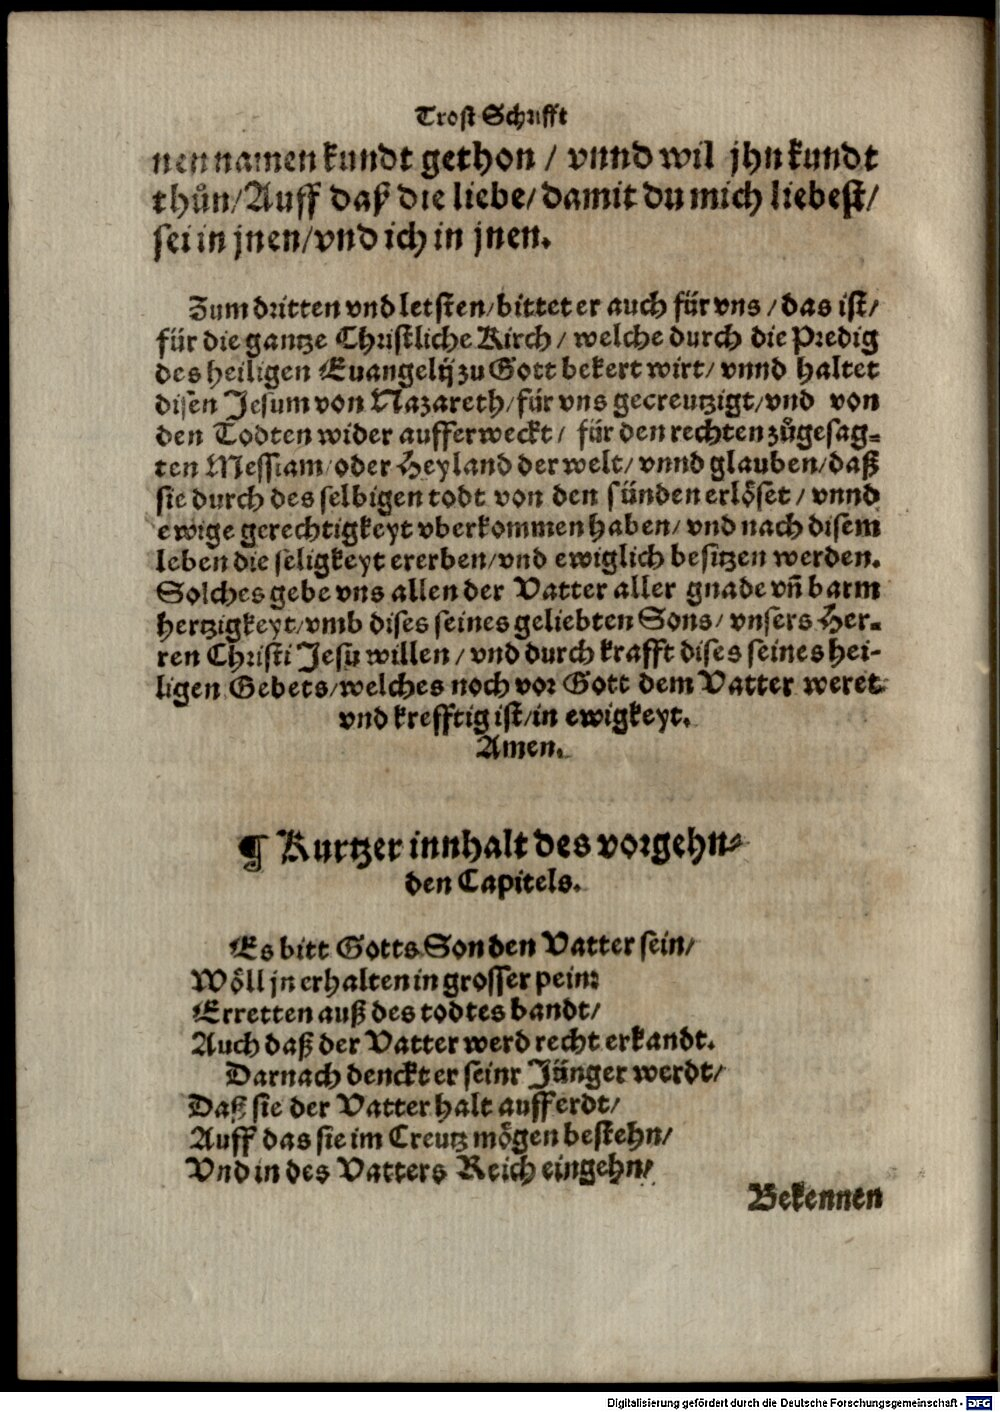 Trost Schrifft
nen namen kundt gethon / vnnd wil jhn kundt
thůn/Auff daß die liebe/damit du mich liebest/
sei in jnen/vnd ich in jnen.
Zum dritten vnd letsten/bittet er auch für vns /das ist/
für die gantze Christliche Kirch / welche durch die Predig
des heiligen Euangelij zu Gott bekert wirt/ vnnd haltet
disen Jesum von Nazareth/für vns gecreutzigt/vnd von
den Todten wider aufferweckt/ für den rechten zůgesag=
ten Messiam/oder Heyland der welt/ vnnd glauben/daß
sie durch desselbigen todt von den sünden erlöset / vnnd
ewige gerechtigkeyt vberkommen haben/ vnd nach disem
leben die seligkeyt ererben/vnd ewiglich besitzen werden.
Solches gebe vns allen der Vatter aller gnade vñ barm
hertzigkeyt/vmb dises seines geliebten Sons/ vnsers Her-
ren Christi Jesu willen / vnd durch krafft dises seines hei-
ligen Gebets/welches noch vor Gott dem Vatter weret
vnd krefftig ist/in ewigkeyt.
Amen.
¶ Kurtzer innhalt des vorgehn=
den Capitels.
Es bitt Gotts Son den Vatter sein/
Wöll jn erhalten in grosser pein:
Erretten auß des todtes bandt/
Auch daß der Vatter werd recht erkandt.
Darnach denckt er seinr Jünger werdt/
Daß sie der Vatter halt auff erdt/
Auff das sie im Creutz mögen bestehn/
Vnd in des Vatters Reich eingehn/
Bekennen
Digitalisierung gefördert durch die Deutsche Forschungsgemeinschaft - DFG